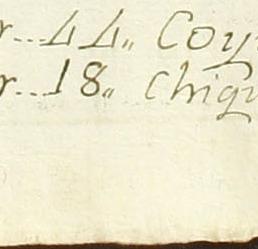 r...44,, Coy
r...18,, chiqu